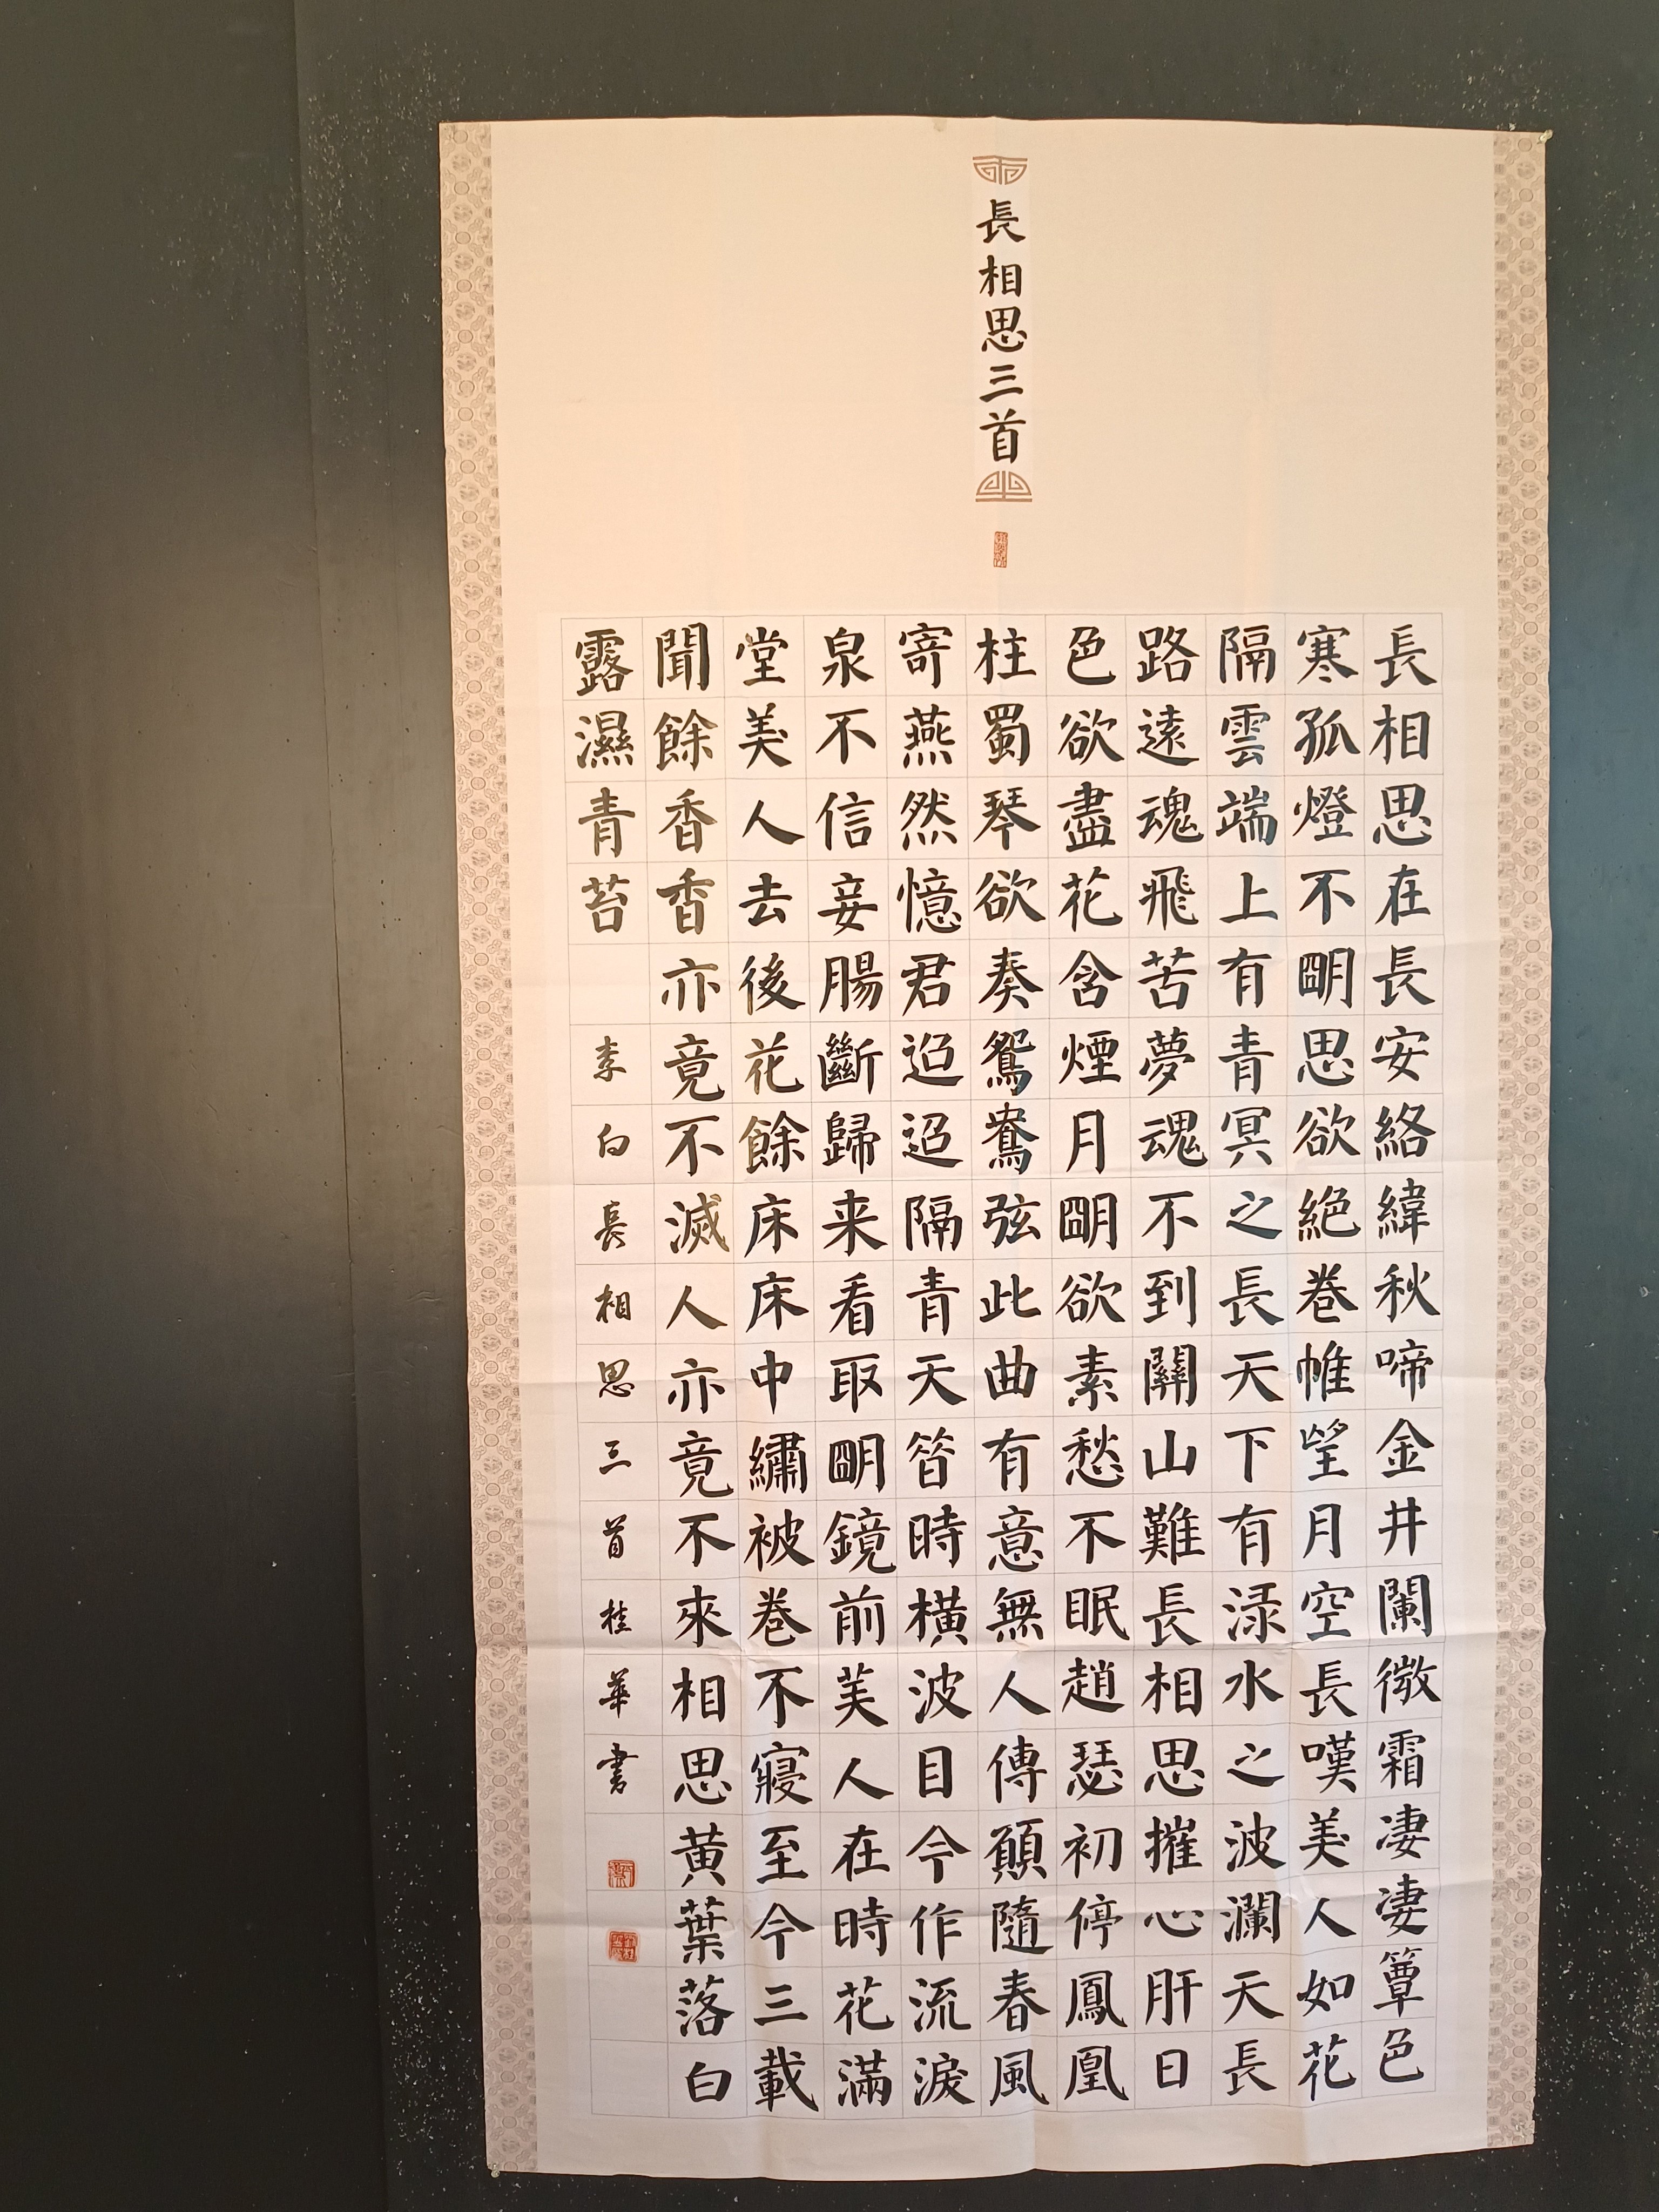 長相思三首
長相思在長安絡緯秋啼金井闌微霜凄凄簟色
寒孤燈不朙思欲絕卷帷望月空長嘆美人如花
隔雲端上有青冥之長天下有渌水之波瀾天長
路遠魂飛苦夢魂不到關山難長相思摧心肝日
色欲盡花含煙月朙欲素愁不眠趙瑟初停鳳凰
柱蜀琴欲奏鴛鴦弦此曲有意無人傳願隨春風
寄燕然憶君迢迢隔青天昔時橫波目今作流淚
泉不信妾腸斷歸来看取朙鏡前美人在時花滿
堂美人去後花餘床床中繡被卷不寢至今三載
聞餘香香亦竟不滅人亦竟不來相思黄葉落白
露濕青苔 李白長相思三首桂華書